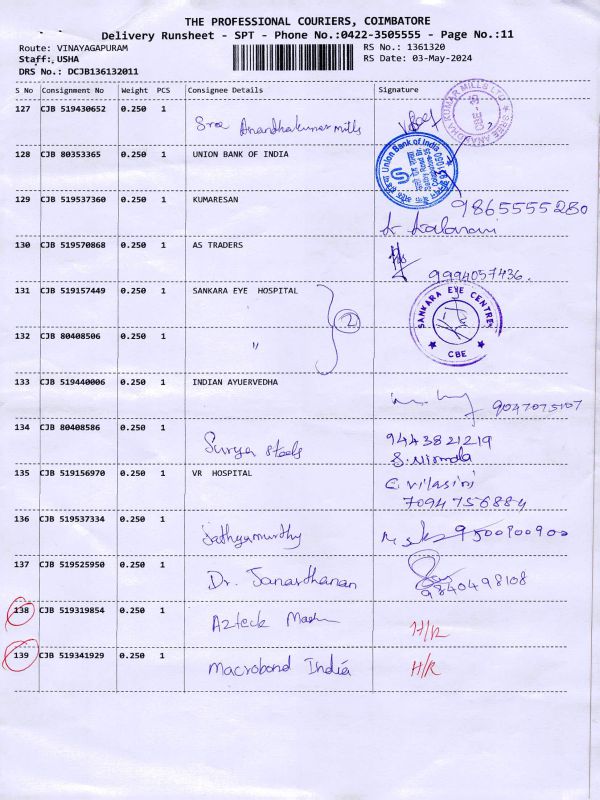 THE PROFESSIONAL COURIERS, COIMBATORE
Delivery Runsheet - SPT - Phone No.:0422-3505555 - Page No.:11
Route: VINAYAGAPURAM RS No.: 1361320
Staff: USHA RS Date: 03-May-2024
DRS No.: DCJB136132011
S No Consignment No Weight PCS Consignee Details Signature
127 CJB 519430652 0.250 1 Sree Anandhakumar mills
128 CJB 80353365 0.250 1 UNION BANK OF INDIA
Union Bank of India
129 CJB 519537360 0.250 1 KUMARESAN 9865555280
130 CJB 519570868 0.250 1 AS TRADERS 9994057436.
131 CJB 519157449 0.250 1 SANKARA EYE HOSPITAL
SANKARA EYE CENTRE
CBE
2
132 CJB 80408506 0.250 1 "
133 CJB 519440006 0.250 1 INDIAN AYUERVEDHA
134 CJB 80408586 0.250 1 Surya steels 9443821219
S. Nirmala
135 CJB 519156970 0.250 1 VR HOSPITAL C. vilasini
7094756884
136 CJB 519537334 0.250 1 Sathyamurthy
137 CJB 519525950 0.250 1 Dr. Janarthanan 9840498108
138 CJB 519319854 0.250 1 Azteck H/R
139 CJB 519341929 0.250 1 Macrobond India H/R